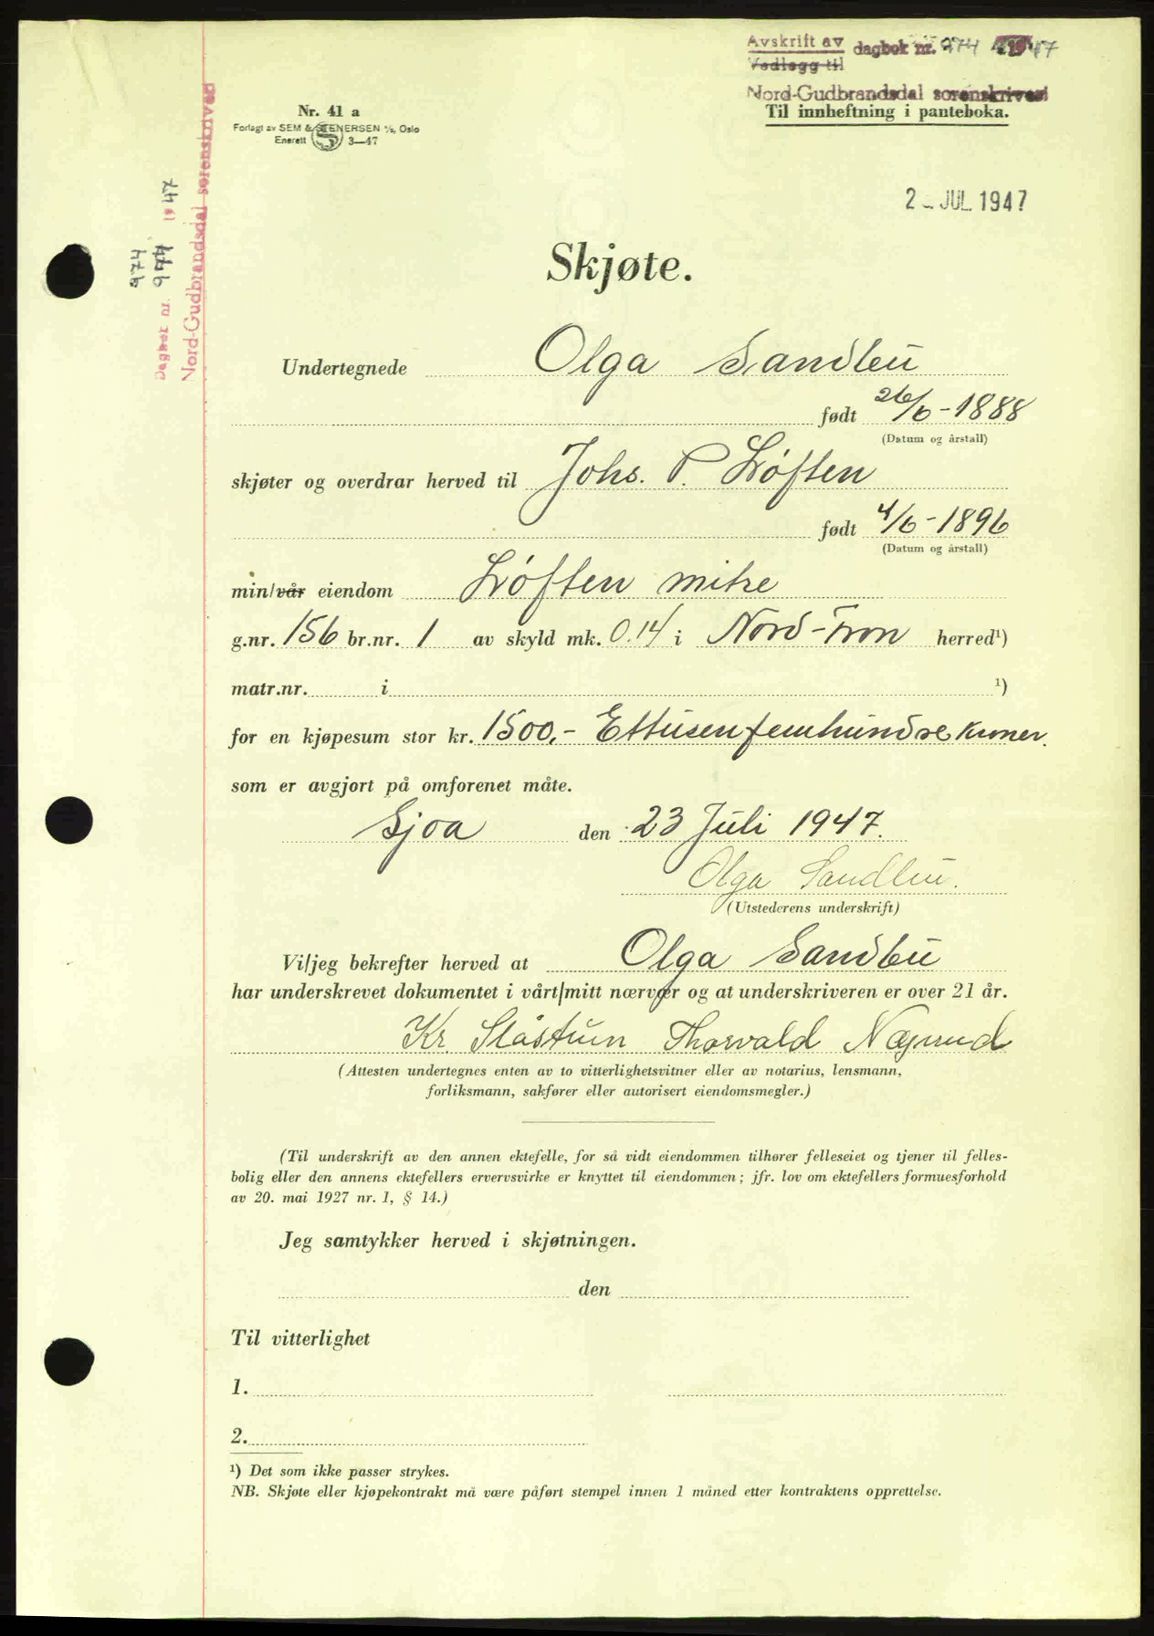 Avskrift av dagbok nr. 974 1947
Vedlegg til
Nord-Gudbrandsdal sorenskriveri
Til innheftning i panteboka.
Nr. 41 a
Forlagt av SEM & STENERSEN A/S, Oslo
Enerett S 3—47
2 - JUL 1947
974
Dagbok nr. 1947
Nord-Gudbrandsdal sorenskriveri
Skjøte.
Undertegnede Olga Sandbu
født 26/6-1888
(Datum og årstall)
skjøter og overdrar herved til Johs. P. Løften
født 4/6-1896
(Datum og årstall)
min/vår eiendom Løften mitre
g.nr. 156 br.nr. 1 av skyld mk. 0.14 i Nord-Fron herred¹)
matr.nr. i ¹)
for en kjøpesum stor kr. 1500,- Ettusenfemhundre kroner.
som er avgjort på omforenet måte.
Sjoa den 23 Juli 1947.
Olga Sandbu.
(Utstederens underskrift)
Vi/jeg bekrefter herved at Olga Sandbu
har underskrevet dokumentet i vårt/mitt nærvær og at underskriveren er over 21 år.
Kr. Slåstuen Thorvald
(Attesten undertegnes enten av to vitterlighetsvitner eller av notarius, lensmann,
forliksmann, sakfører eller autorisert eiendomsmegler.)
(Til underskrift av den annen ektefelle, for så vidt eiendommen tilhører felleseiet og tjener til felles-
bolig eller den annens ektefellers ervervsvirke er knyttet til eiendommen; jfr. lov om ektefellers formuesforhold
av 20. mai 1927 nr. 1, § 14.)
Jeg samtykker herved i skjøtningen.
den
Til vitterlighet
1.
2.
¹) Det som ikke passer strykes.
NB. Skjøte eller kjøpekontrakt må være påført stempel innen 1 måned etter kontraktens opprettelse.